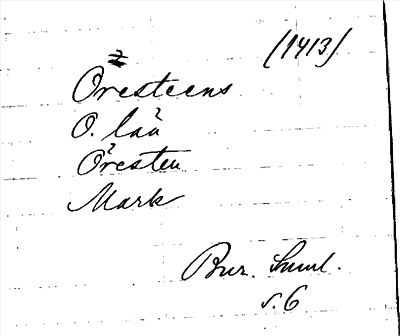 (1413)
Oresteens
O. lää
Öresten
Mark
Bur. Suml.
s. 6